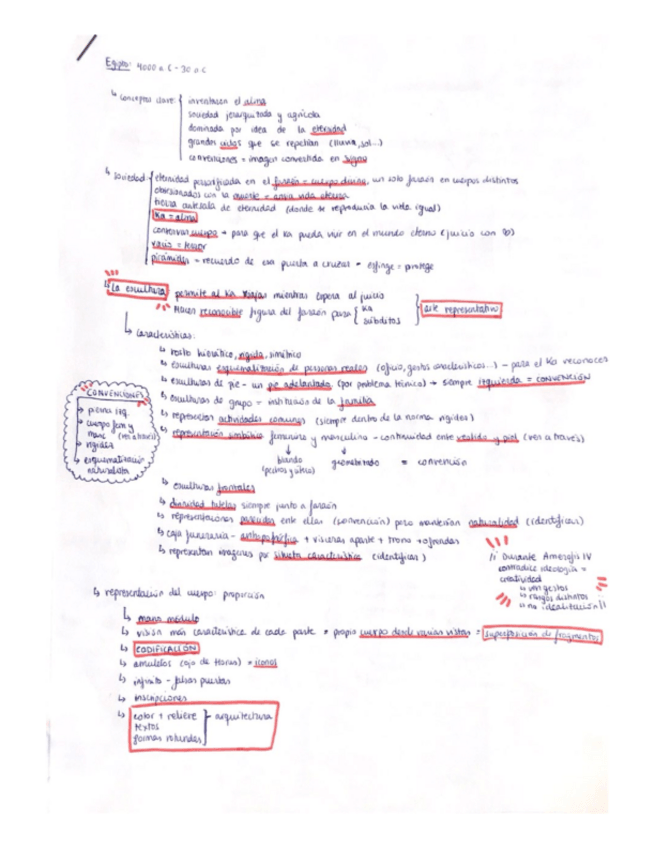 Egipto: 4000 a.C - 30 a.C
↳ conceptos clave: inventasen el alma
sociedad jerarquitada y agrícola
dominada por idea de la eternidad
grandes ciclos que se repetían (lluvia, sol...)
convenciones = imagen convertida en signo
↳ sociedad: eternidad personificada en el faraón = cuerpo divino, un solo faraón en cuerpos distintos
obsesionados con la muerte = otra vida eterna
tierra antesala de eternidad (donde se reproducía la vida igual)
Ka = alma
conservar cuerpo → para que el Ka pueda vivir en el mundo eterno (juicio con
vacío = terror
pirámides = recuerdo de esa puerta a cruzar = esfinge = protege
↳ La escultura permite al Ka viajar mientras espera al juicio
Hacen reconocible figura del faraón para { Ka
súbditos
arte representativo
↳ características:
↳ rostro hierático, rígido, simétrico
↳ esculturas esquematización de personas reales (oficio, gestos característicos...) - para el Ka reconoces
↳ esculturas de pie - un pie adelantado (por problema técnico) → siempre izquierda = CONVENCIÓN
↳ esculturas de grupo = institución de la familia
↳ representan actividades comunes (siempre dentro de la norma rígidos)
↳ representación simbólica femenino y masculino - continuidad entre vestido y piel (ver a través)
blando
(pechos y púbico)
geometritado = convención
CONVENCIONES
→ pierna izq.
→ cuerpo fem y
masc (ver a través)
→ rigidez
→ esquematización
naturalista
↳ esculturas frontales
↳ divinidad tutelar siempre junto a faraón
↳ representaciones parecidas entre ellas (convención) pero mantenían naturalidad (identificar)
↳ caja funeraria - antropomórfica + vísceras aparte + trono + ofrendas
↳ representan imágenes por silueta característica (identificar)
// Durante Amenofis IV
contradice ideología =
creatividad
↳ van gestos
↳ rasgos distintos
↳ no idealitación //
↳ representación del cuerpo: proporción
↳ mano módulo
↳ visión más característica de cada parte = propio cuerpo desde varias vistas = superposición de fragmentos
↳ CODIFICACIÓN
↳ amuletos (ojo de Horus) = iconos
↳ infinito - falsas puertas
↳ inscripciones
↳ color + relieve
textos
formas rotundas
} - arquitectura